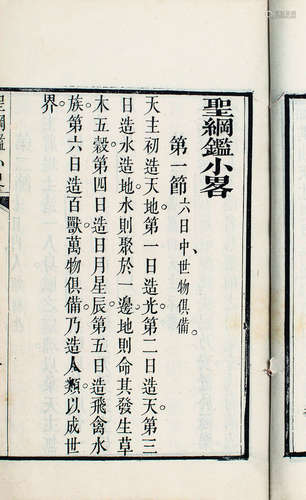 聖綱鑑小畧
第一節 六日中、世物俱備。
天主初造天地。第一日造光。第二日造天。第三
日造水造地。水則聚於一邊。地則命其發生草
木五穀。第四日造日月星辰。第五日造飛禽水
族。第六日造百獸萬物俱備。乃造人類。以成世
界。
聖綱鑑小畧